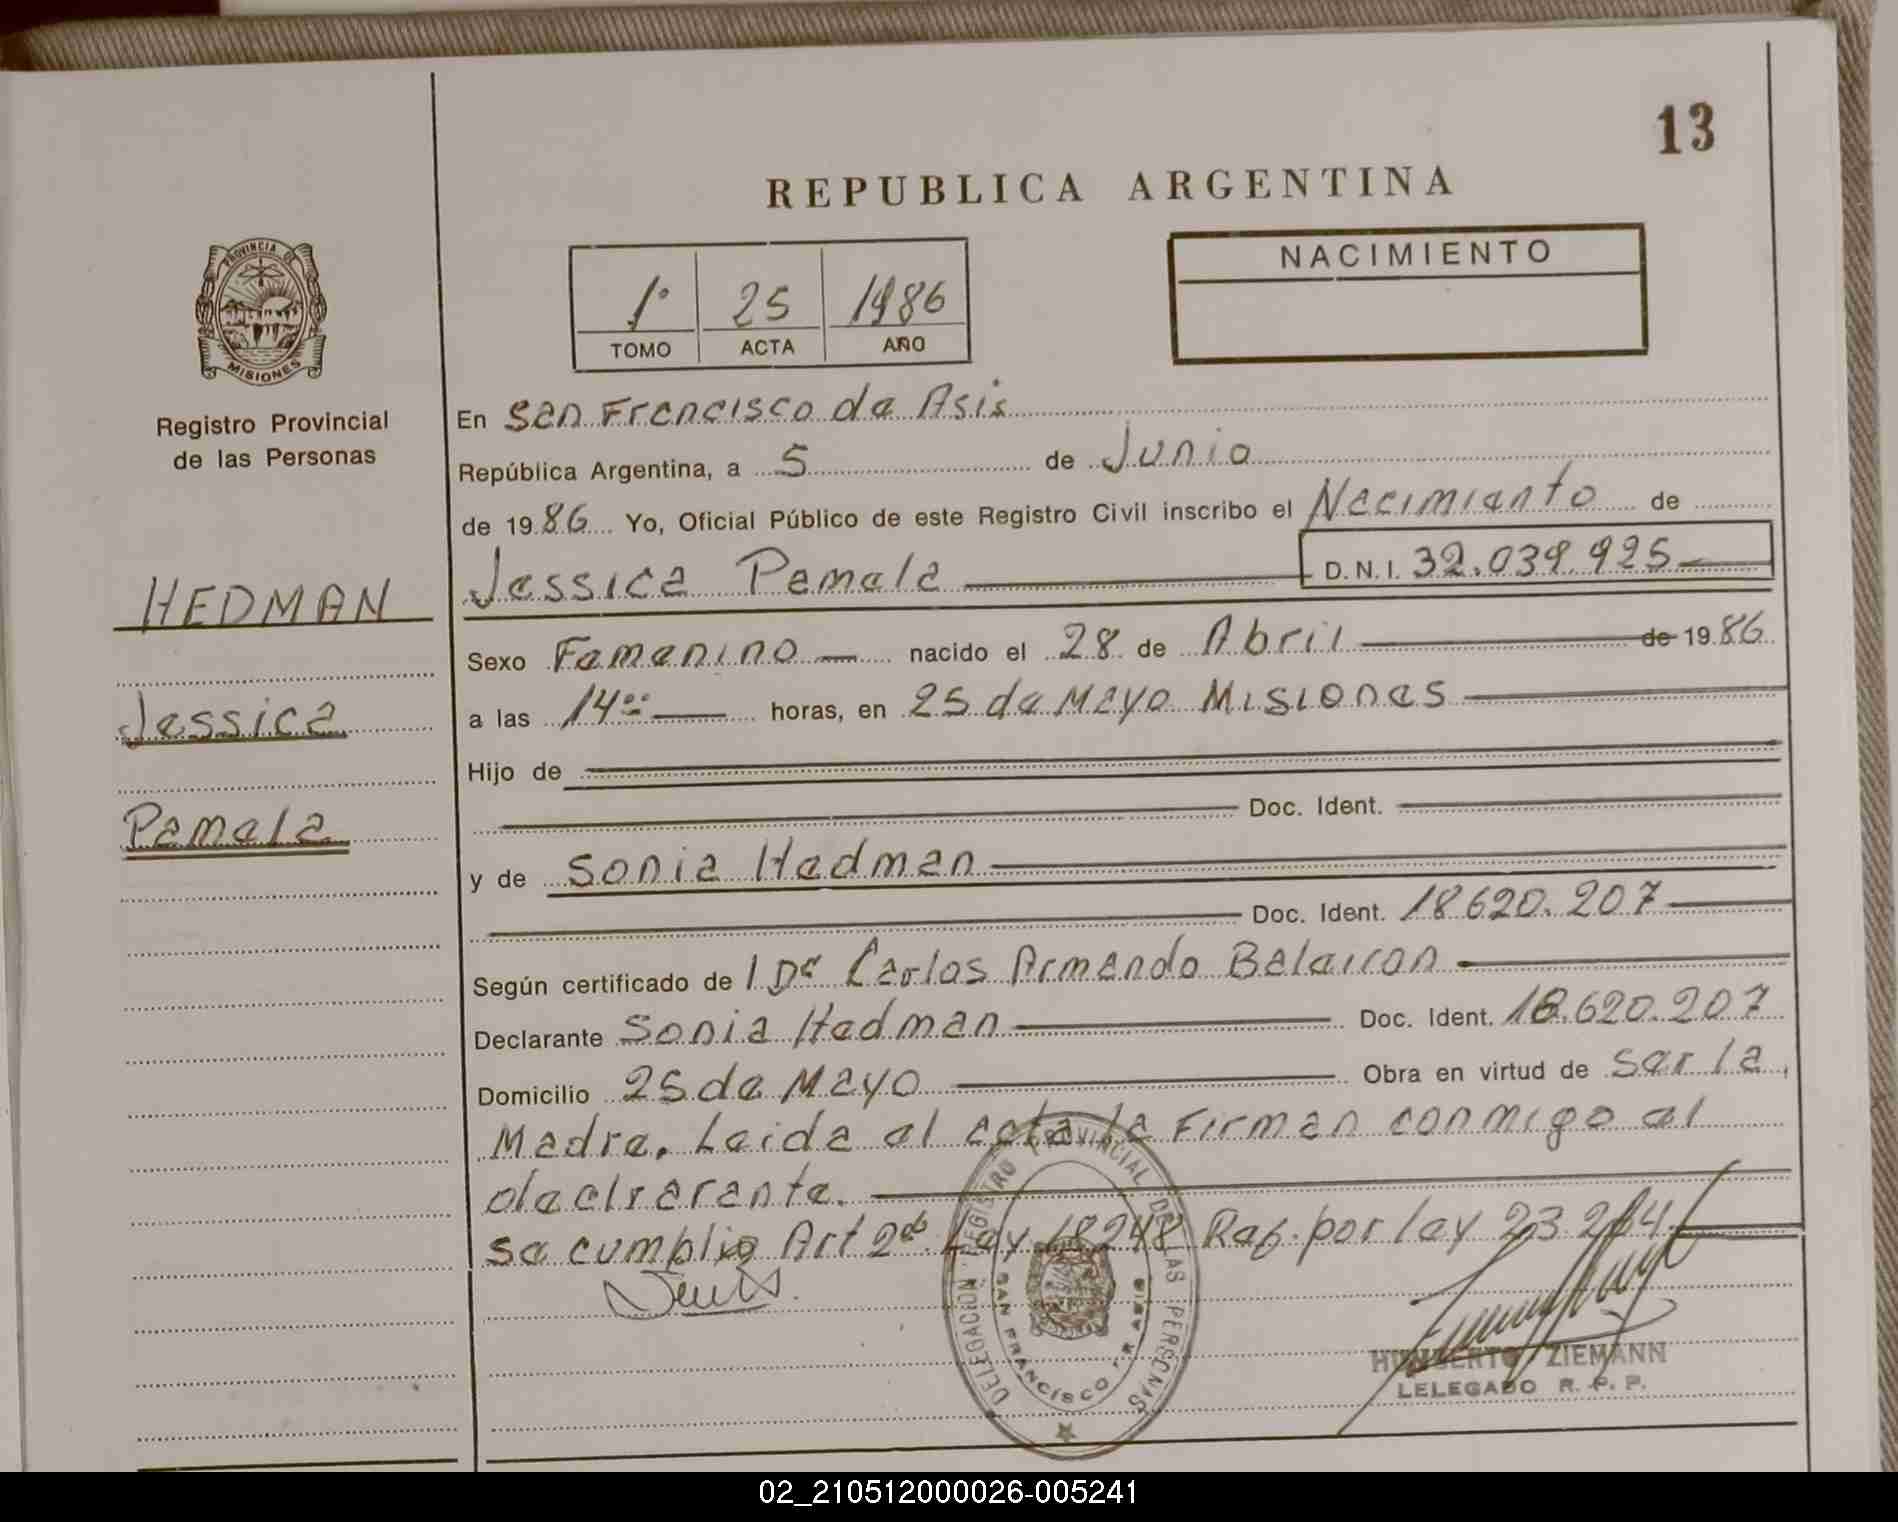 13
REPUBLICA ARGENTINA
PROVINCIA DE
MISIONES
1º 25 1986
TOMO ACTA AÑO
NACIMIENTO
Registro Provincial
de las Personas
HEDMAN
Jessica
Pamela
En San Francisco de Asis
República Argentina, a 5 de Junio
de 1986 Yo, Oficial Público de este Registro Civil inscribo el Nacimiento de
Jessica Pamela D.N.I. 32.039.925
Sexo Femenino nacido el 28 de Abril de 1986
a las 14ºº horas, en 25 de Mayo Misiones
Hijo de
Doc. Ident.
y de Sonia Hedman
Doc. Ident. 18620.207
Según certificado de Dr Carlos Armando
Declarante Sonia Hedman Doc. Ident. 18.620.207
Domicilio 25 de Mayo Obra en virtud de ser la
Madre. Leida el acta la Firman conmigo el
declrarante.
se cumplio Art 2do. Ley 18248 Ref. por ley 23.264
DELEGACION REGISTRO PROVINCIAL DE LAS PERSONAS
SAN FRANCISCO DE ASIS
HUMBERTO ZIEMANN
LELEGADO R. P. P.
02_210512000026-005241